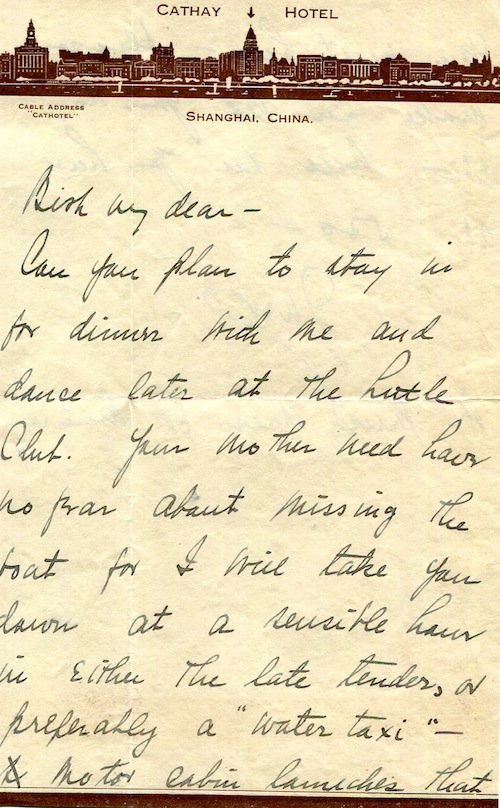 CATHAY HOTEL
CABLE ADDRESS
"CATHOTEL"
SHANGHAI, CHINA.
my dear –
Can you plan to stay in
for dinner with me and
dance later at the Little
Club. Your mother need have
no fear about missing the
boat for I will take you
down at a sensible hour
in either the late tender, or
preferably a "water taxi" –
motor cabin launches that